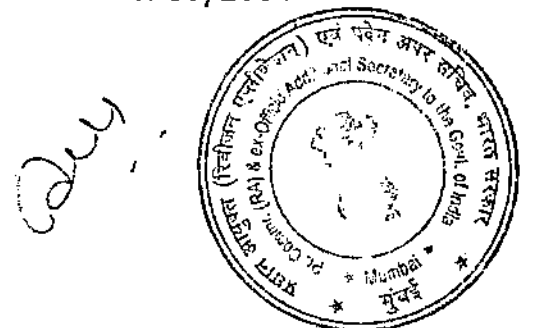 प्रधान आयुक्त (रिवीजन एप्लीकेशन) एवं पदेन अपर सचिव, भारत सरकार
Pr. Commr. (RA) & ex-Officio Additional Secretary to the Govt. of India
* Mumbai *
* मुंबई *